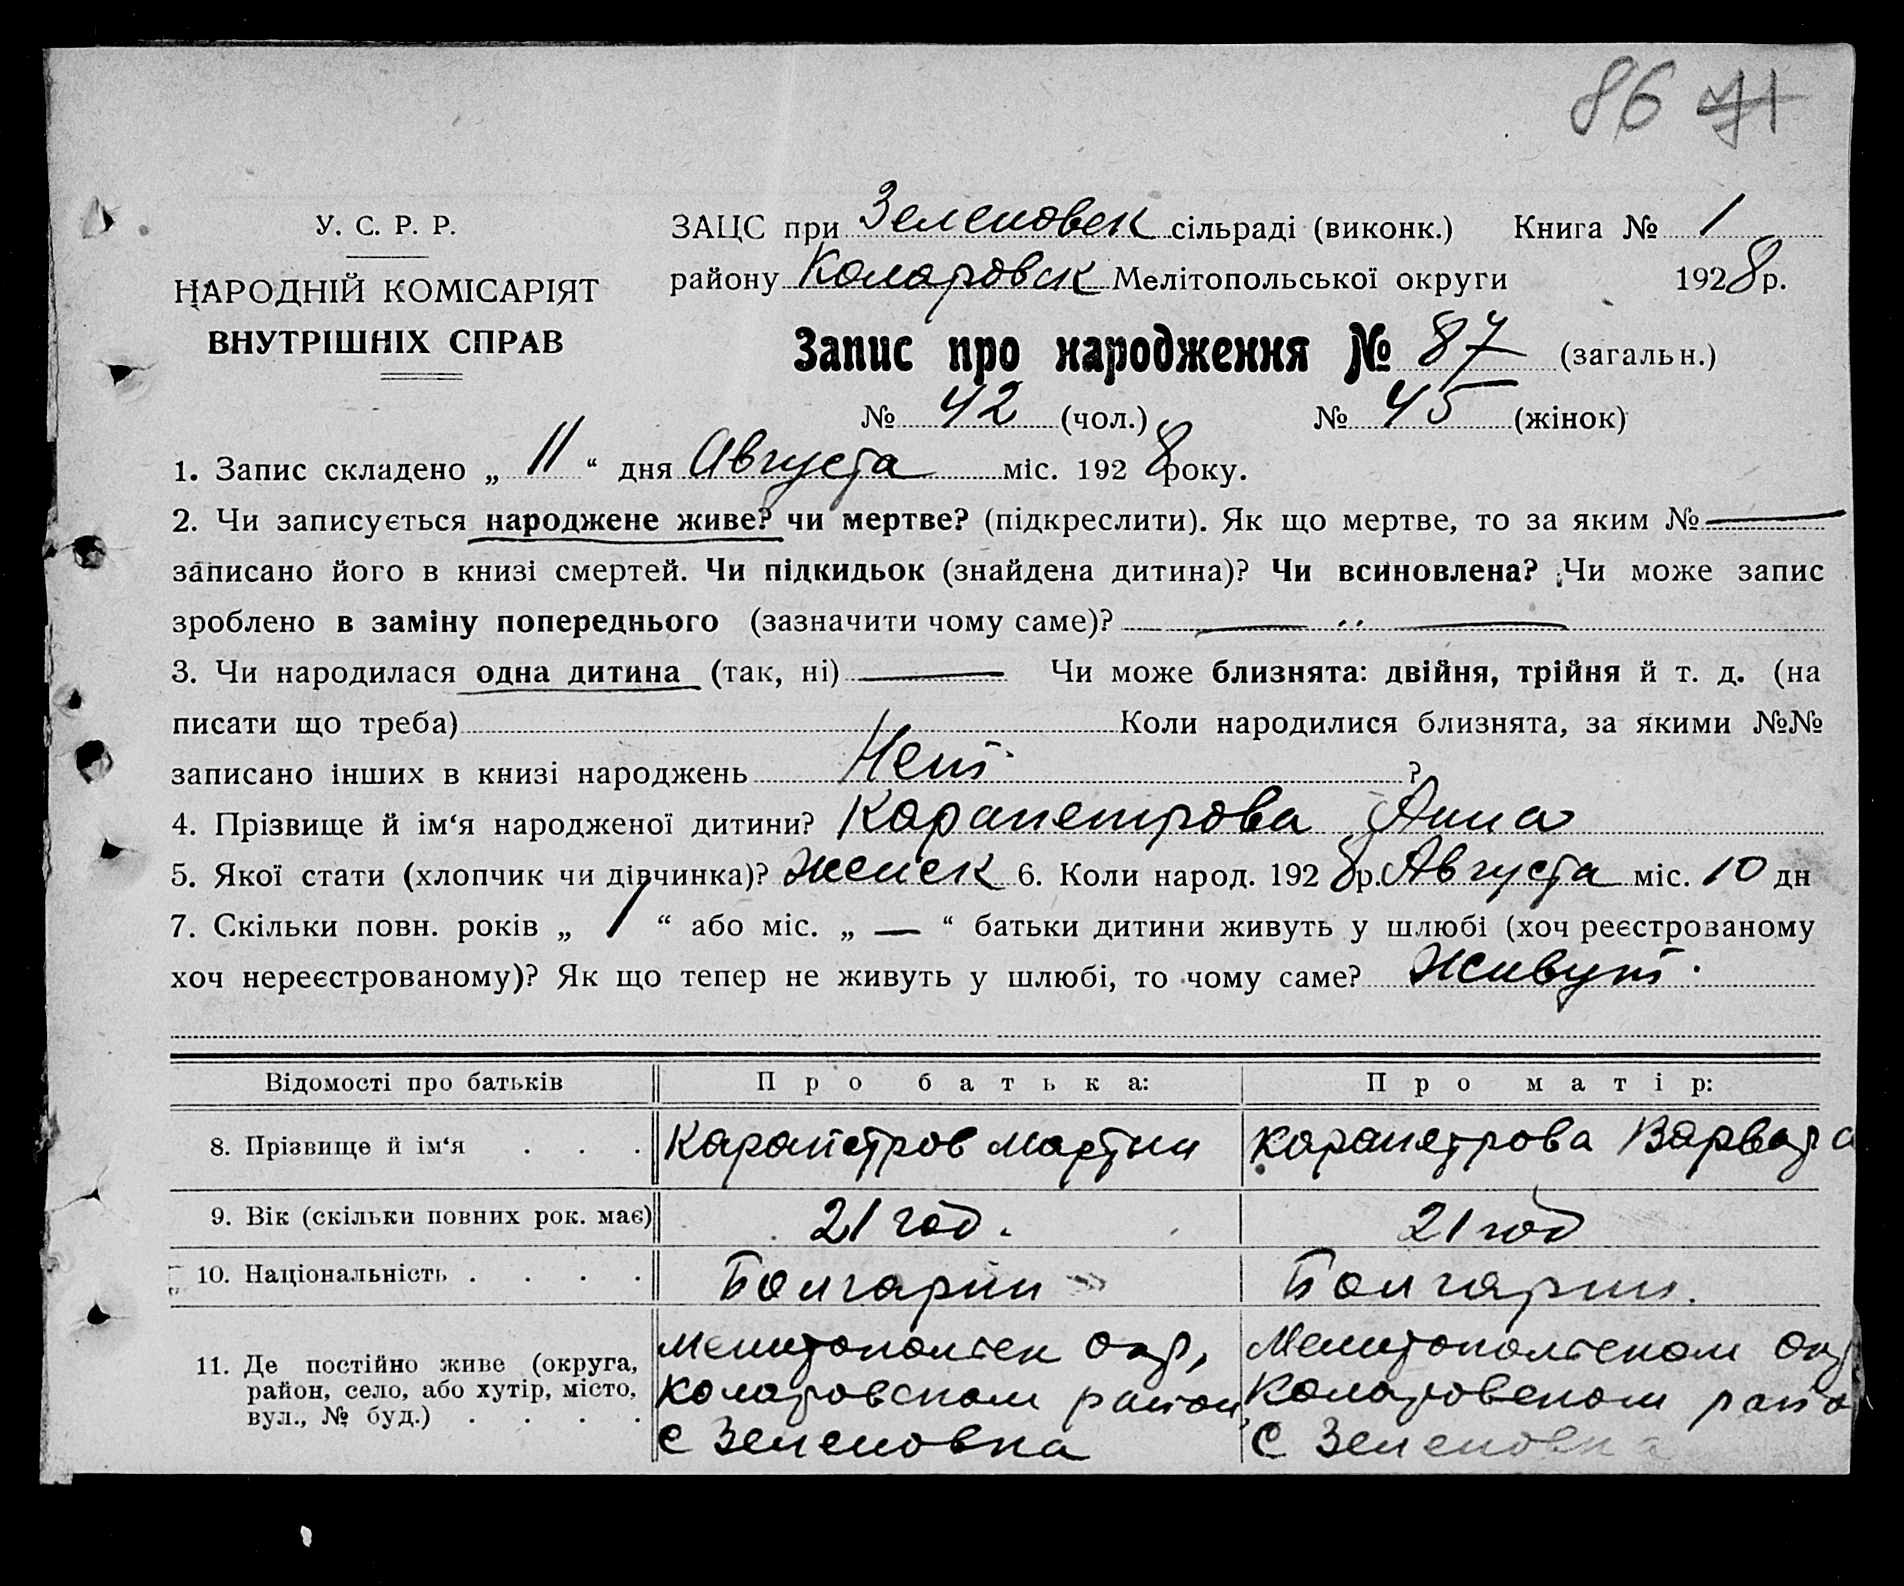 86 71
У. С. Р. Р.
НАРОДНІЙ КОМІСАРІЯТ
ВНУТРІШНІХ СПРАВ
ЗАЦС при Зеленовск сільраді (виконк.) Книга № 1
району Коларовск Мелітопольської округи 1928 р.
Запис про народження № 87 (загальн.)
№ 42 (чол.) № 45 (жінок)
1. Запис складено „ 11 “ дня Августа міс. 1928 року.
2. Чи записується народжене живе? чи мертве? (підкреслити). Як що мертве, то за яким № —
записано його в книзі смертей. Чи підкидьок (знайдена дитина)? Чи всиновлена? Чи може запис
зроблено в заміну попереднього (зазначити чому саме)? — „ —
3. Чи народилася одна дитина (так, ні) — Чи може близнята: двійня, трійня й т. д. (на
писати що треба) Коли народилися близнята, за якими №№
записано інших в книзі народжень Нет ?
4. Прізвище й ім‘я народженої дитини? Карапетрова Анна
5. Якої стати (хлопчик чи дівчинка)? Женск 6. Коли народ. 1928 р. Августа міс. 10 дн
7. Скільки повн. років „ 1 “ або міс. „ — “ батьки дитини живуть у шлюбі (хоч реєстрованому
хоч нереєстрованому)? Як що тепер не живуть у шлюбі, то чому саме? Живут.
Відомості про батьків Про батька: Про матір:
8. Прізвище й ім‘я . . . Карапетров Мартин Карапетрова Варвара
9. Вік (скільки повних рок. має) 21 год. 21 год
10. Національність . . . . Болгарин Болгарин.
11. Де постійно живе (округа, район, село, або хутір, місто, вул., № буд.) . . . .
Мелитопольск окр,
Коларовском район
с Зеленовка
Мелитопольском окр
Коларовском райо
С Зеленовка